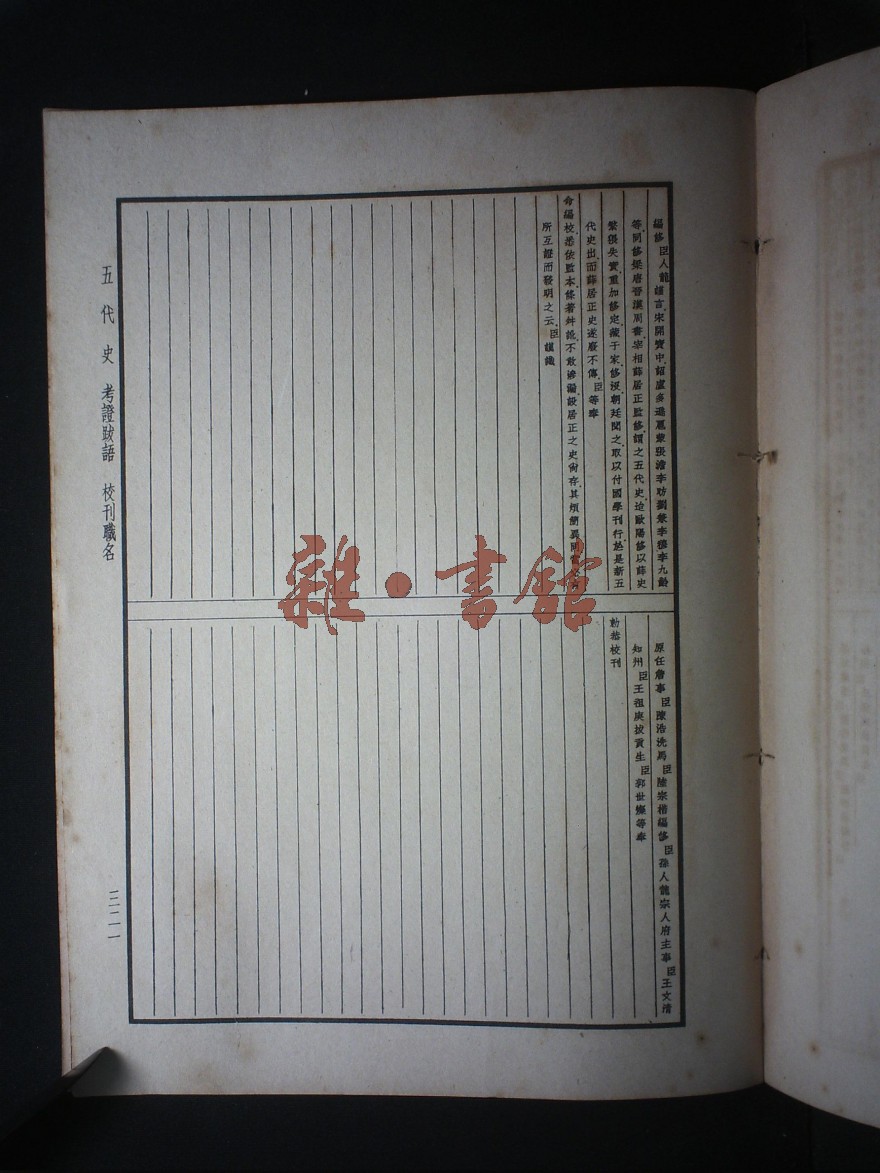 編修臣人龍謹言宋開寶中詔盧多遜扈蒙張澹李昉劉兼李穆李九齡
等同修梁唐晉漢周書宰相薛居正監修謂之五代史迨歐陽修以薛史
繁猥失實重加修定藏于家修沒朝廷聞之取以付國學刊行於是新五
代史出而薛居正史遂廢不傳臣等奉
命編校悉依監本條著舛訛不敢滲漏設居正之史尚存其煩簡異同
所互證而發明之云臣謹識
原任詹事臣陳浩洗馬臣陸宗楷編修臣孫人龍宗人府主事臣王文清
知州臣王祖庚拔貢生臣郭世燦等奉
勅恭校刊
五代史 考證跋語 校刊職名
三二一
雜·書館